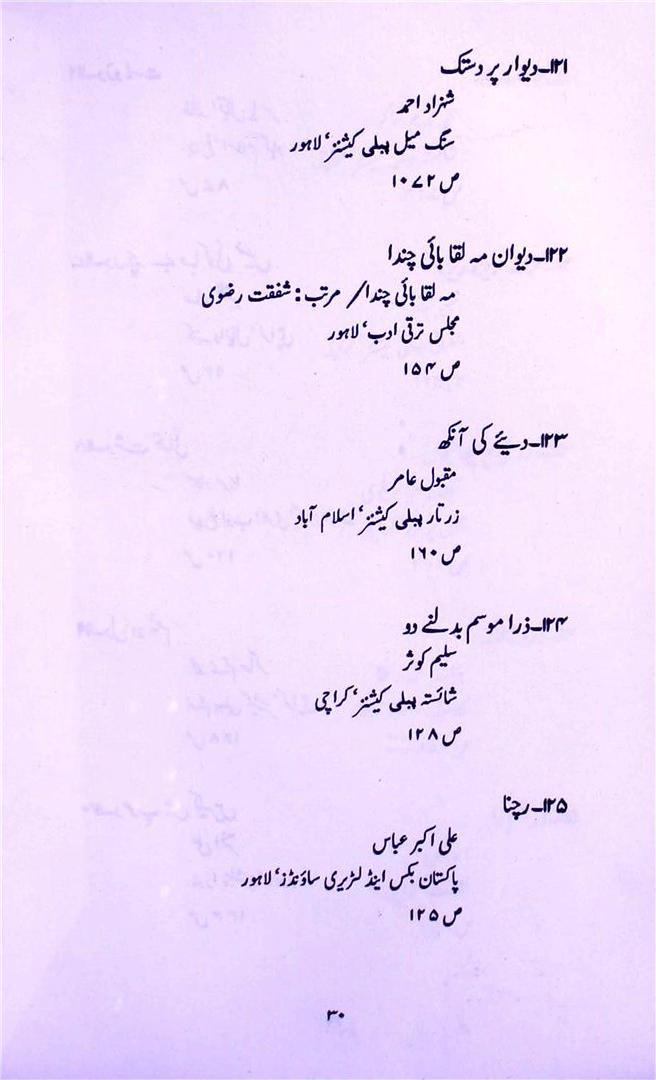 ۱۲۱۔دیوار پر دستک
شہزاد احمد
سنگ میل پبلی کیشنز‘ لاہور
ص ۱۰۷۲
۱۲۲۔دیوان مہ لقا بائی چندا
مہ لقا بائی چندا/ مرتب: شفقت رضوی
مجلس ترقی ادب‘ لاہور
ص ۱۵۴
۱۲۳۔دیئے کی آنکھ
مقبول عامر
زرتار پبلی کیشنز‘ اسلام آباد
ص ۱۶۰
۱۲۴۔ذرا موسم بدلنے دو
سلیم کوثر
شائستہ پبلی کیشنز‘ کراچی
ص ۱۲۸
۱۲۵۔رچنا
علی اکبر عباس
پاکستان بکس اینڈ لٹریری ساؤنڈز‘ لاہور
ص ۱۲۵
۳۰